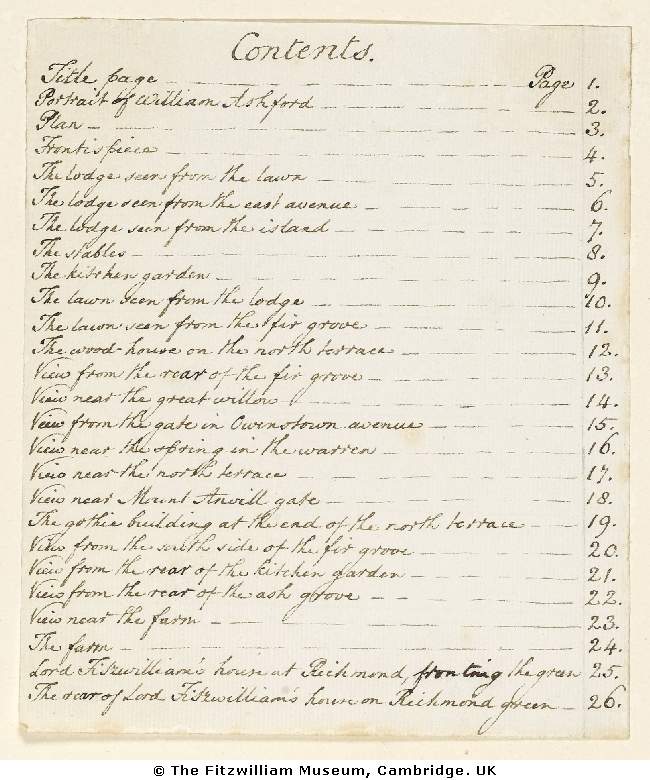 Contents.
Title page — Page 1.
Portrait of William Ashford — 2.
Plan — 3.
Frontispiece — 4.
The lodge seen from the lawn — 5.
The lodge seen from the east avenue — 6.
The lodge seen from the island — 7.
The stables — 8.
The kitchen garden — 9.
The lawn seen from the lodge — 10.
The lawn seen from the fir grove — 11.
The wood-house on the north terrace — 12.
View from the rear of the fir grove — 13.
View near the great willow — 14.
View from the gate in Owenstown avenue — 15.
View near the spring in the warren — 16.
View near the north terrace — 17.
View near Mount Anvill gate — 18.
The gothic building at the end of the north terrace — 19.
View from the south side of the fir grove — 20.
View from the rear of the kitchen garden — 21.
View from the rear of the ash grove — 22.
View near the farm — 23.
The farm — 24.
Lord Fitzwilliam's house at Richmond, fronting the green 25.
The rear of Lord Fitzwilliam's house on Richmond green — 26.
© The Fitzwilliam Museum, Cambridge. UK